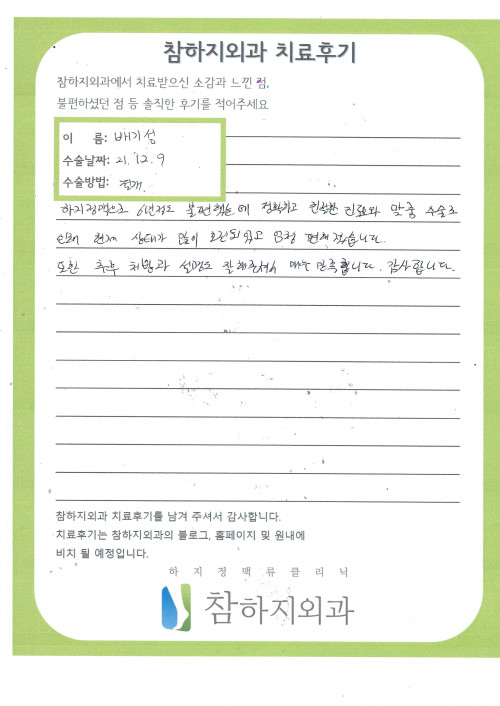 참하지외과 치료후기
참하지외과에서 치료받으신 소감과 느낀 점,
불편하셨던 점 등 솔직한 후기를 적어주세요
이 름: 배기성
수술날짜: 21. 12. 9
수술방법: 절개.
하지정맥으로 6년정도 불편했는데 정확하고 친절한 진료와 맞춤 수술로
인해 현재 상태가 많이 호전되었고 엄청 편해졌습니다.
또한 추후 처방과 설명도 잘해주셔서 매우 만족합니다. 감사합니다.
참하지외과 치료후기를 남겨 주셔서 감사합니다.
치료후기는 참하지외과의 블로그, 홈페이지 및 원내에
비치 될 예정입니다.
하지정맥류클리닉
참하지외과